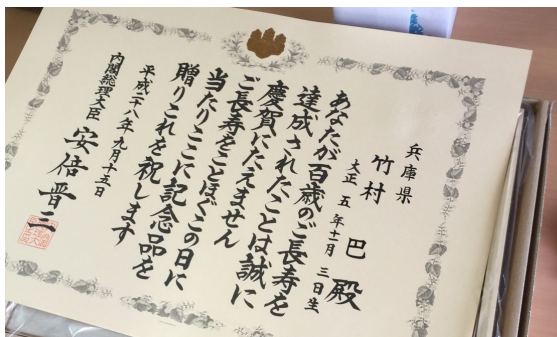 兵庫県
竹村 巴 殿
大正 五 年十一月 三 日生
あなたが百歳のご長寿を
達成されたことは誠に
慶賀にたえません
ご長寿をことほぐこの日に
当たりここに記念品を
贈りこれを祝します
平成二十八年九月十五日
内閣総理大臣 安倍晋三